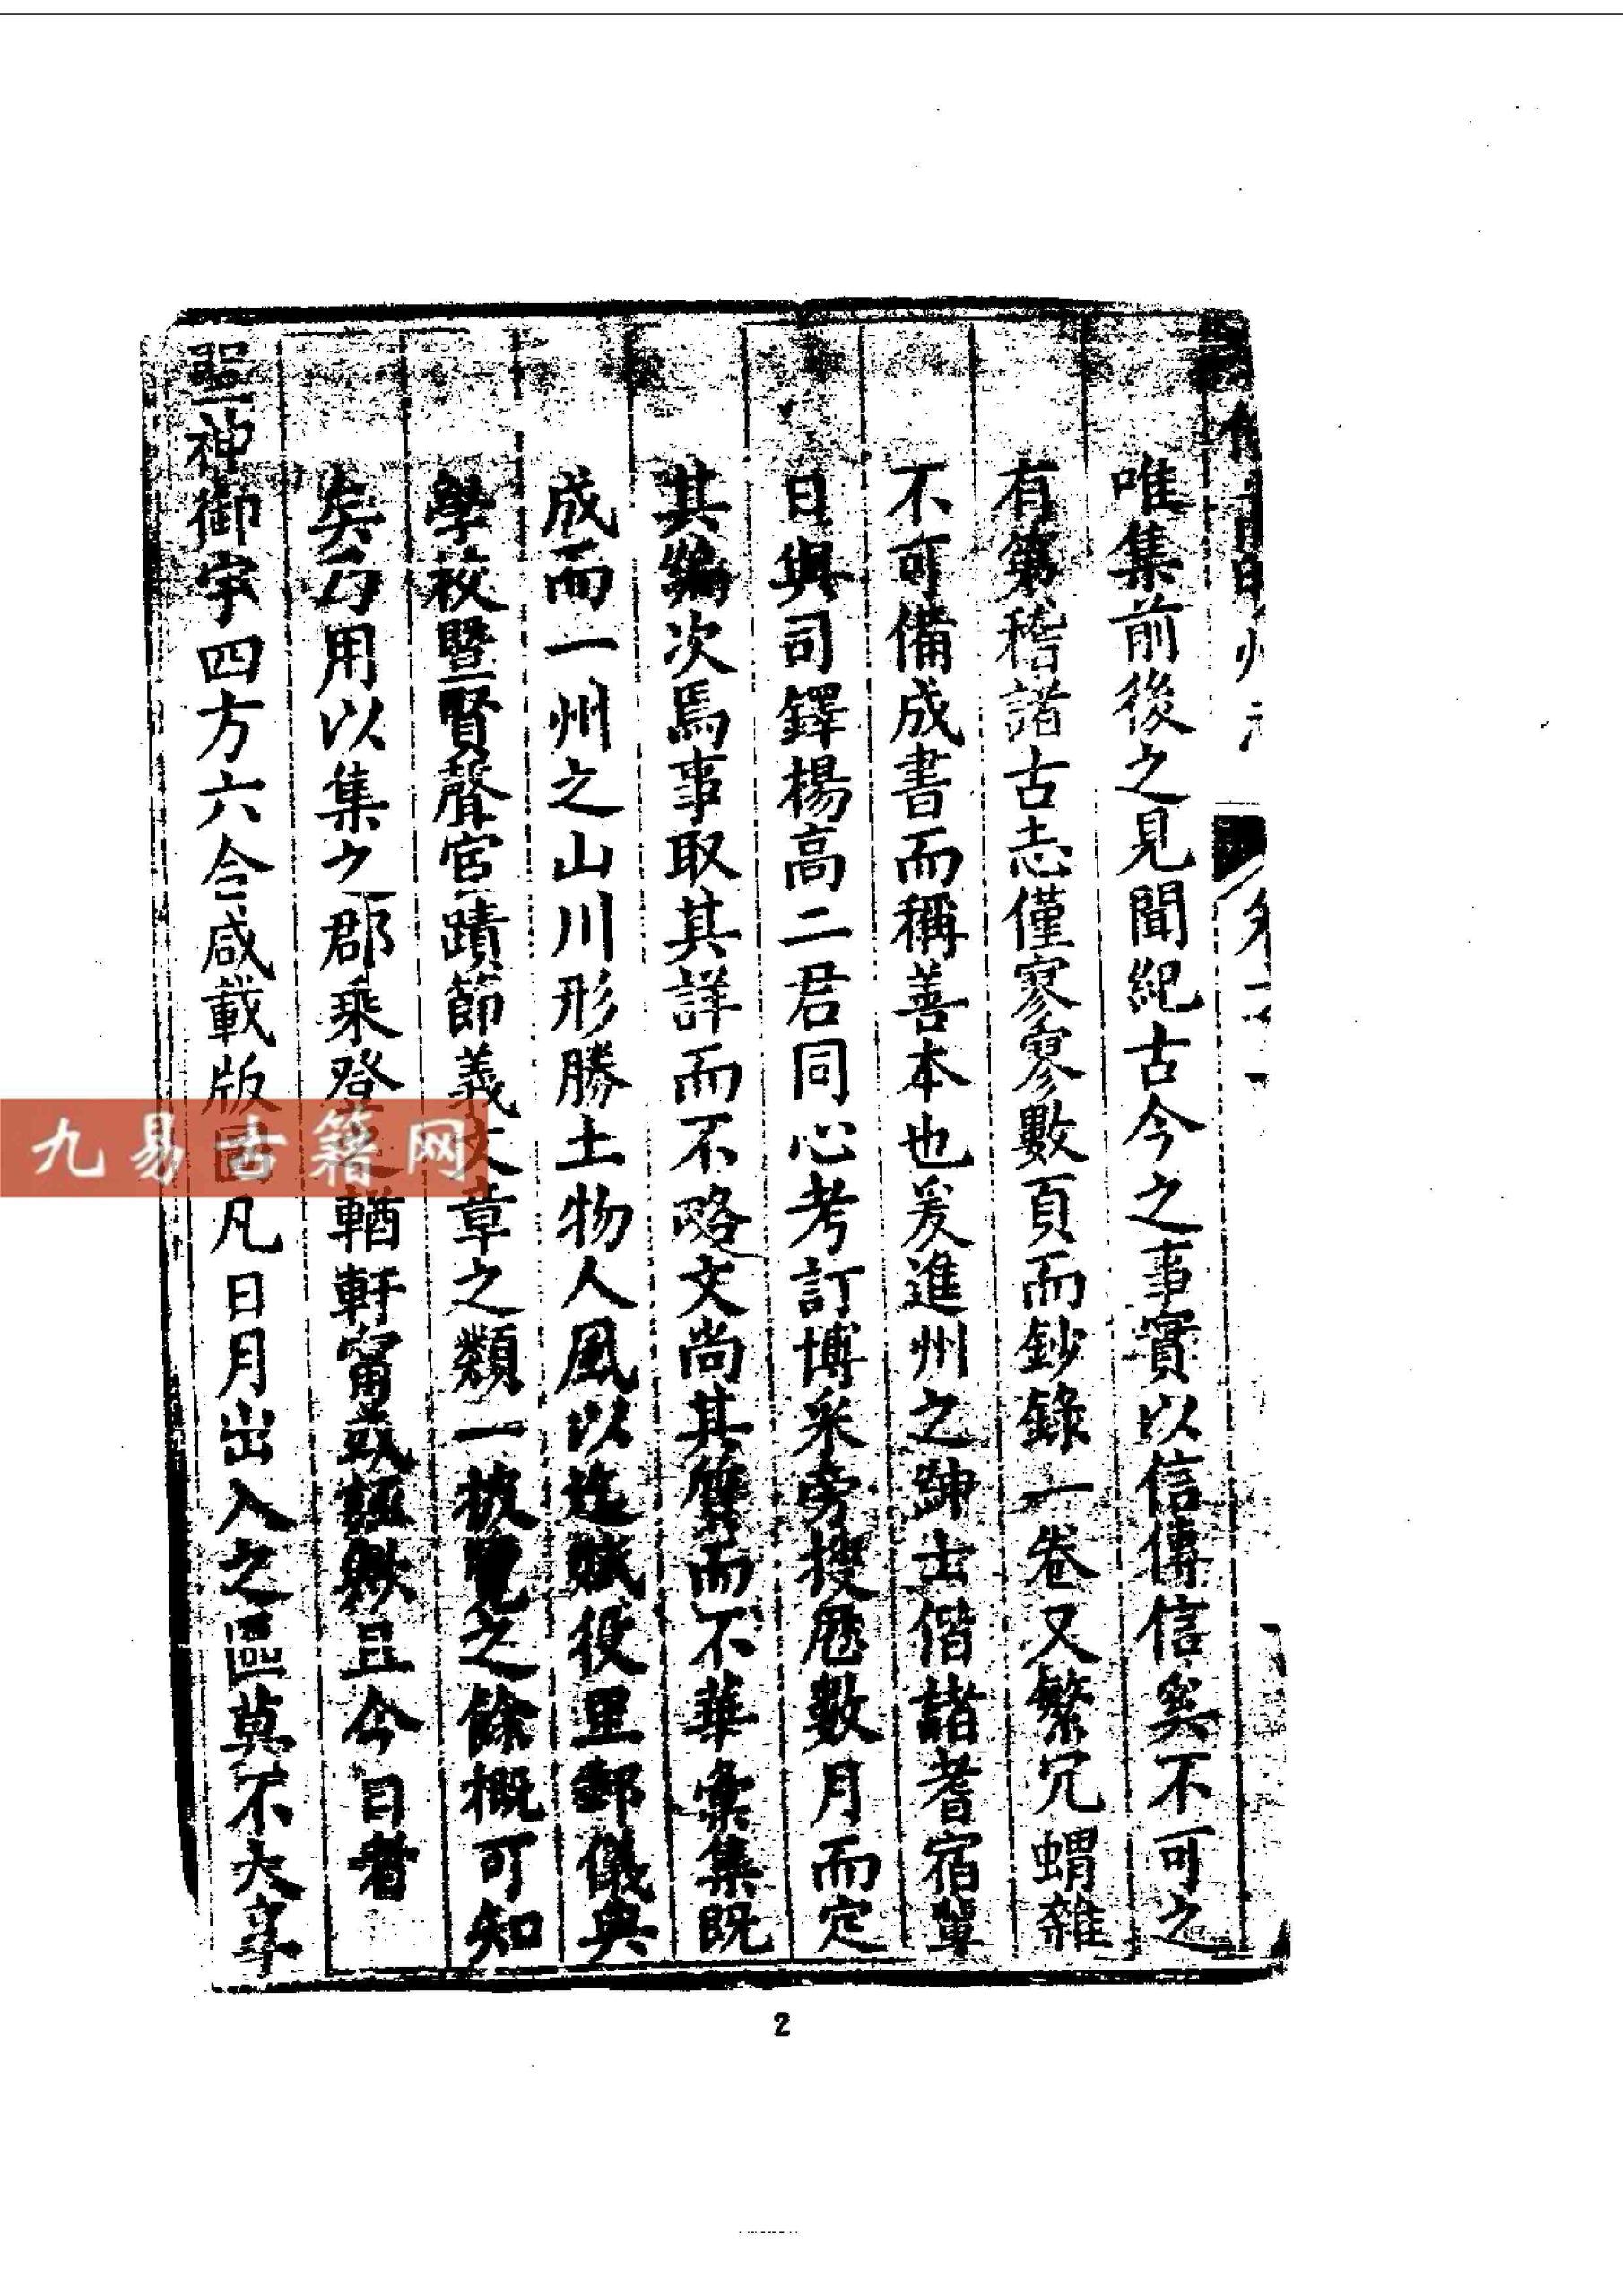 唯集前後之見聞紀古今之事實以信傳信奚不可之
有第稽諸古志僅寥寥數頁而鈔錄一卷又繁冗蝟雜
不可備成書而稱善本也爰進州之紳士偕諸耆宿輩
日與司鐸楊高二君同心考訂博采旁搜歷數月而定
其編次焉事取其詳而不略文尚其質而不華彙集既
成而一州之山川形勝土物人風以迄賦役里郵儀典
學校暨賢聲宦蹟節義文章之類一披覽之餘概可知
矣乃用以集之郡乘登之輶軒甯或誣歟且今日者
聖神御宇四方六合咸載版圖凡日月出入之區莫不大率
九易古籍网
2